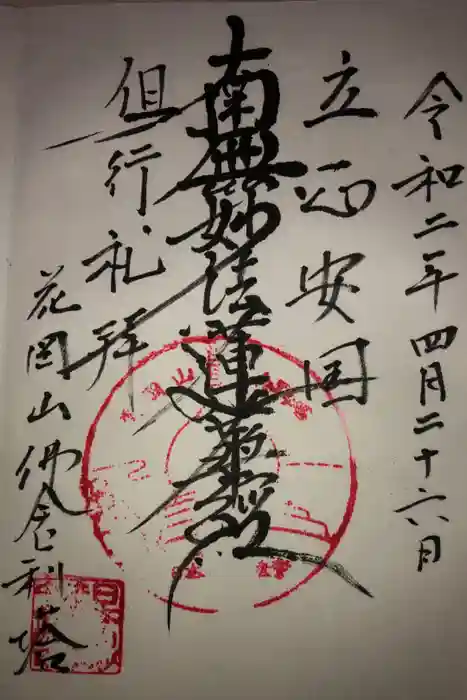 令和二年四月二十六月
立正安国
南無妙法蓮華経
但行礼拝
花岡山佛舎利塔